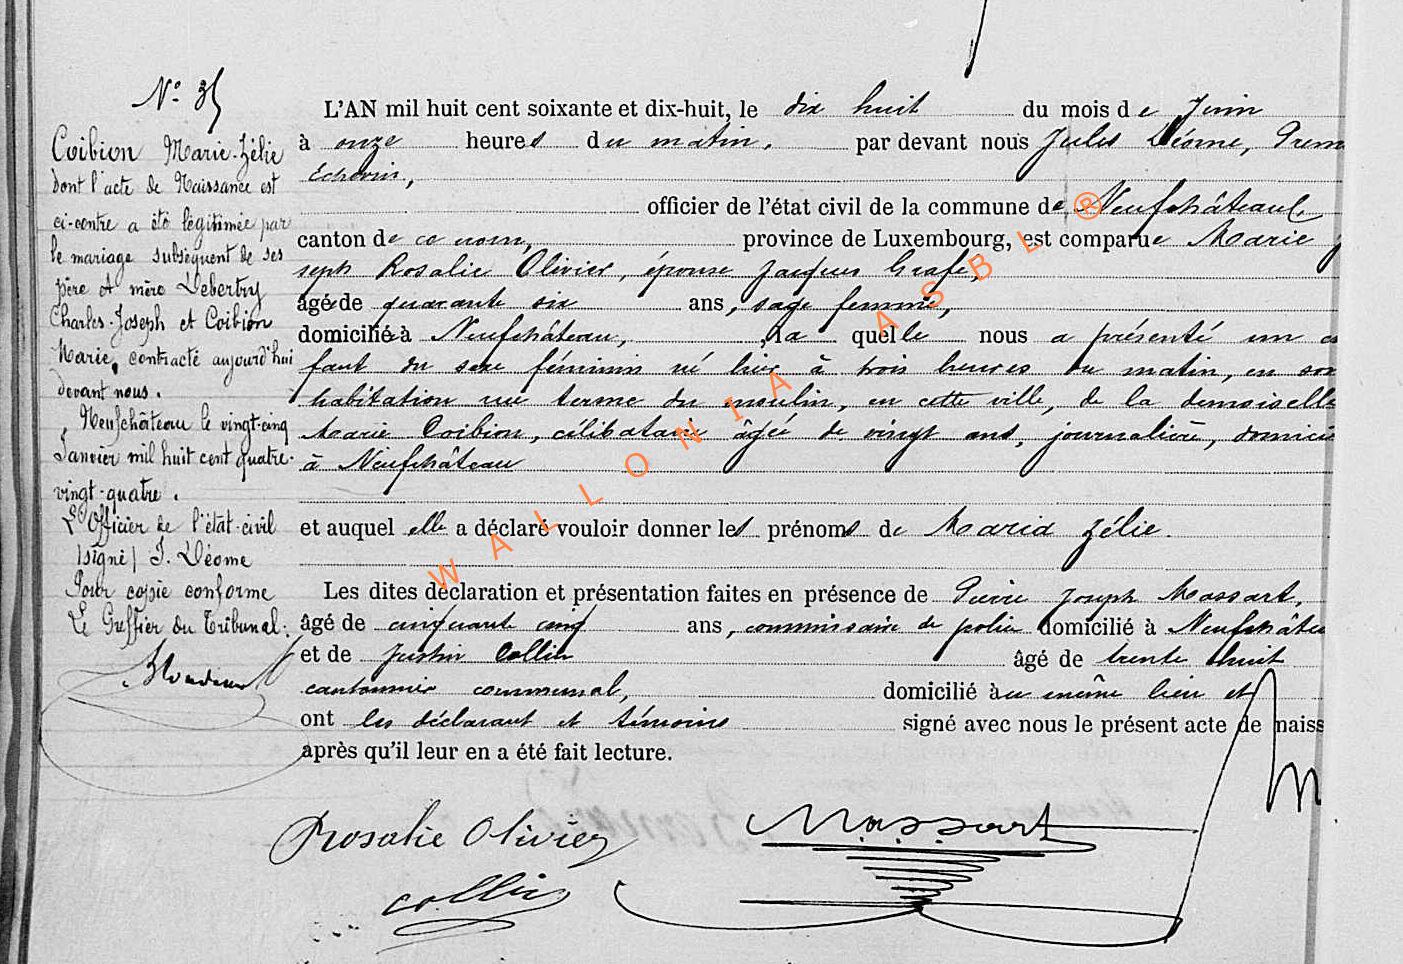 N° 35
Coibion Marie-Zélie
dont l'acte de Naissance est
ci-contre a été légitimée par
le mariage subséquent de ses
père et mère Debertry
Charles-Joseph et Coibion
Marie, contracté aujourd'hui
devant nous.
Neufchâteau le vingt-cinq
Janvier mil huit cent quatre-
vingt-quatre.
L'Officier de l'état-civil
(signé) J. Déome
Pour copie conforme
Le Greffier du Tribunal.
L'AN mil huit cent soixante et dix-huit, le dix huit du mois de Juin
à onze heures du matin, par devant nous Jules Déome, Prem
échevin,
officier de l'état civil de la commune de Neufchâteau,
canton de ce nom, province de Luxembourg, est comparue Marie J
seph Rosalie Olivier, épouse Jacques Grafe,
âgée de quarante six ans, sage femme,
domiciliée à Neufchâteau, la quelle nous a présenté un en
fant du sexe féminin né hier à trois heures du matin, en son
habitation rue terme du moulin, en cette ville, de la demoiselle
Marie Coibion, célibataire âgée de vingt ans, journalière, domicili
à Neufchâteau
et auquel elle a déclaré vouloir donner les prénoms de Maria Zélie.
Les dites déclaration et présentation faites en présence de Pierre Joseph Massart,
âgé de cinquante cinq ans, commissaire de police domicilié à Neufchâte
et de Justin Collin âgé de trente huit
cantonnier communal, domicilié au même lieu et
ont les déclarant et témoins signé avec nous le présent acte de naiss
après qu'il leur en a été fait lecture.
Rosalie Olivier
Massart
Collin
WALLONIA ASBL ®